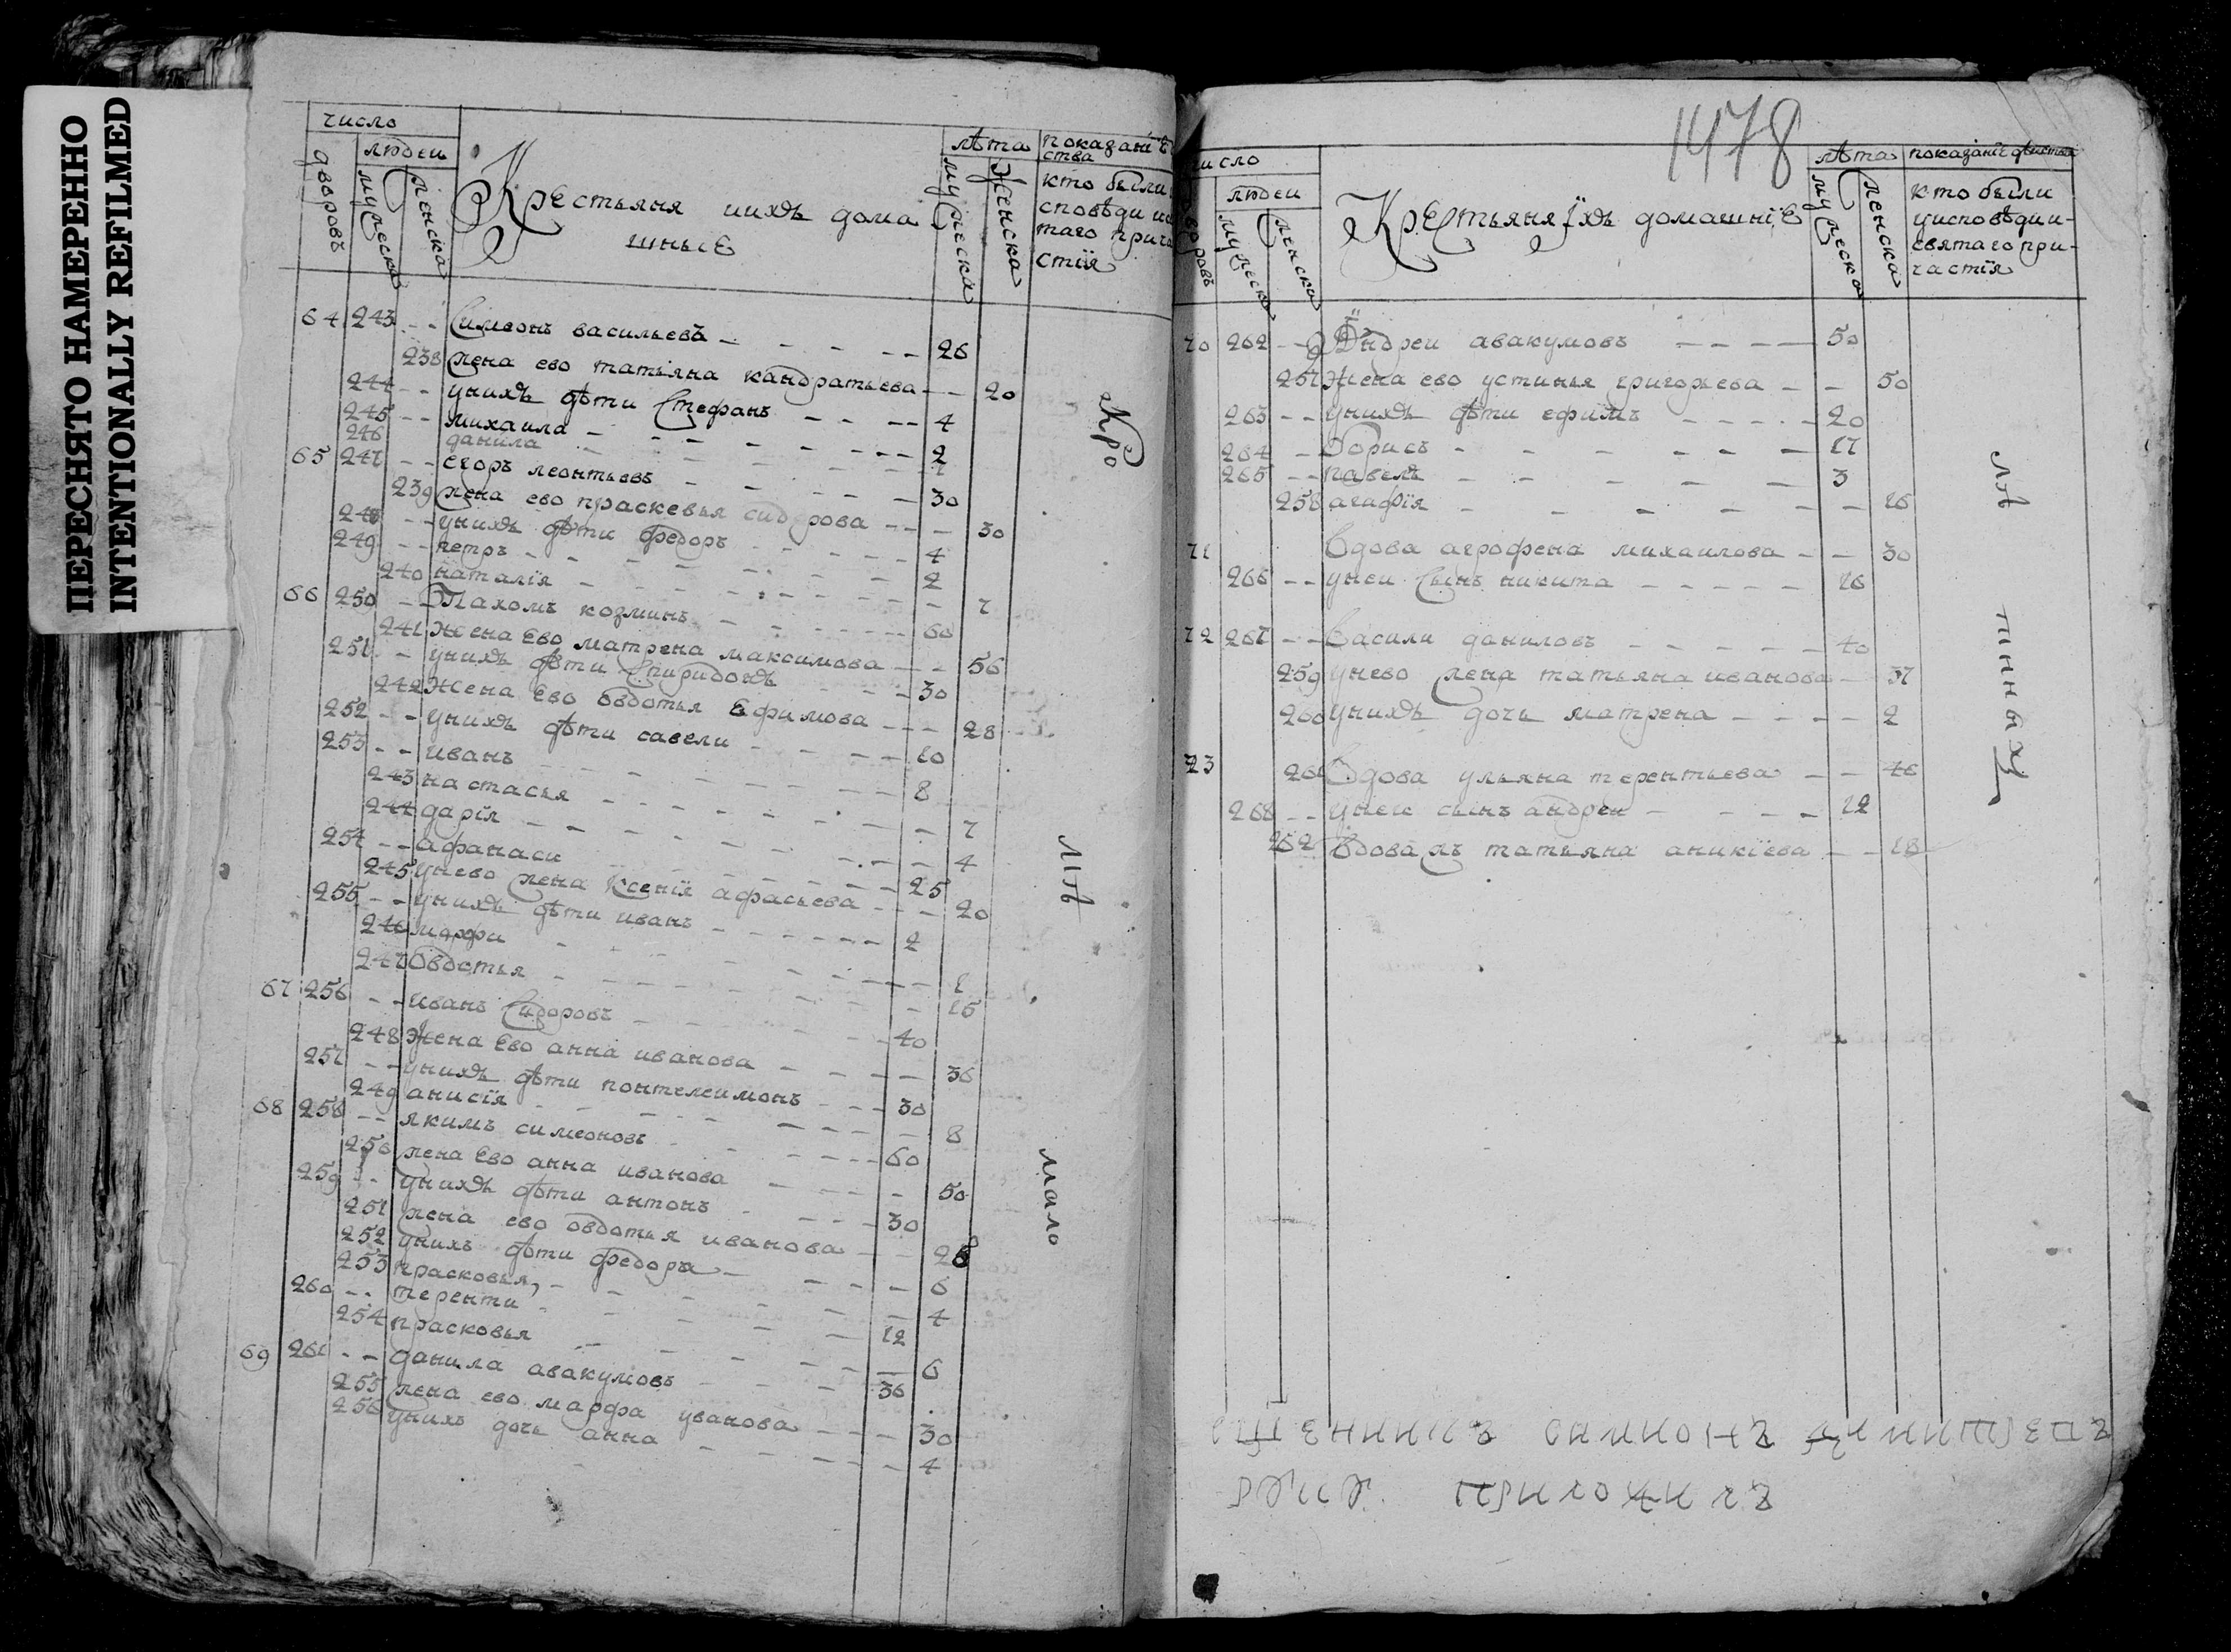 ПЕРЕСНЯТО НАМЕРЕННО
INTENTIONALLY REFILMED
число
людеи
дворовъ
мужеска
женска
Крестьяня иихъ дома
шныіе
лѣта
мужеска
женска
показаніе
ства
кто были
споведи и
таго прича
стія
64 243 -- Симеонъ васильевъ - - - - 26
238 жена ево татьяна кандратьева - - 20
244 -- унихъ дѣти Стефанъ - - - - 4
245 -- михаила - - - - 2
246 данила - - - -
65 247 -- егоръ леонтьевъ - - - - 30
239 жена ево праскевья сидорова - - - 30
248 -- унихъ дѣти федоръ - - - - 4
249 -- петръ - - - - 2
240 наталія - - - - 7
66 250 -- Пахомъ козминъ - - - - 60
241 жена ево матрена максимова - - 56
251 -- унихъ дѣти Спиридонъ - - - 30
242 Жена ево овдотья Ефимова - - - 28
252 -- унихъ дѣти савели - - - - 10
253 -- иванъ - - - - 8
243 настасья - - - - 7
244 дарія - - - - 4
254 -- афанаси - - - - 25
245 унево жена Ксенія афасьева - - - 20
255 -- унихъ дѣти иванъ - - - - 2
246 марфи - - - - 1
247 Овдотья - - - - 15
67 256 -- иванъ Сидоровъ - - - - 40
248 Жена Ево анна иванова - - - - 36
257 -- унихъ дѣти понтелеимонъ - - - 30
249 анисія - - - - 8
68 258 -- якимъ симеоновъ - - - - 60
250 жена Ево анна иванова - - - - 50
259 -- унихъ дѣти антонъ - - - - 30
251 жена ево овдотья иванова - - 28
252 унихъ дѣти федора - - - - 6
253 прасковья, - - - - 4
260 -- теренти - - - - 12
254 прасковья - - - - 6
69 261 -- данила авакумовъ - - - - 36
255 жена ево марфа уванова - - - 30
256 унихъ дочь анна - - - - 4
Кро
мѣ
мало
1478
число
людеи
дворовъ
мужеска
женска
Крестьяня іхъ домашніе
лѣта
мужеска
женска
показаніе дѣиства
кто были
уисповѣди и-
святаго при-
частія
70 262 -- Андреи авакумовъ - - - - 50
257 Жена ево устинья григорьева - - 50
263 -- унихъ дѣти ефимъ - - - - 20
264 -- борисъ - - - - 17
265 -- павелъ - - - - 3
258 агафія - - - - 16
71 Вдова агрофена михаилова - - 30
266 -- унеи Сынъ никита - - - - 16
72 267 -- Васили даниловъ - - - - 40
259 унево жена татьяна иванова - 37
260 унихъ дочь матрена - - - - 2
73 261 Вдова ульяна терентьева - - 46
268 -- унеи сынъ андреи - - - - 12
262 Вдова жъ татьяна аникіева - - 18
лѣ
тныхъ